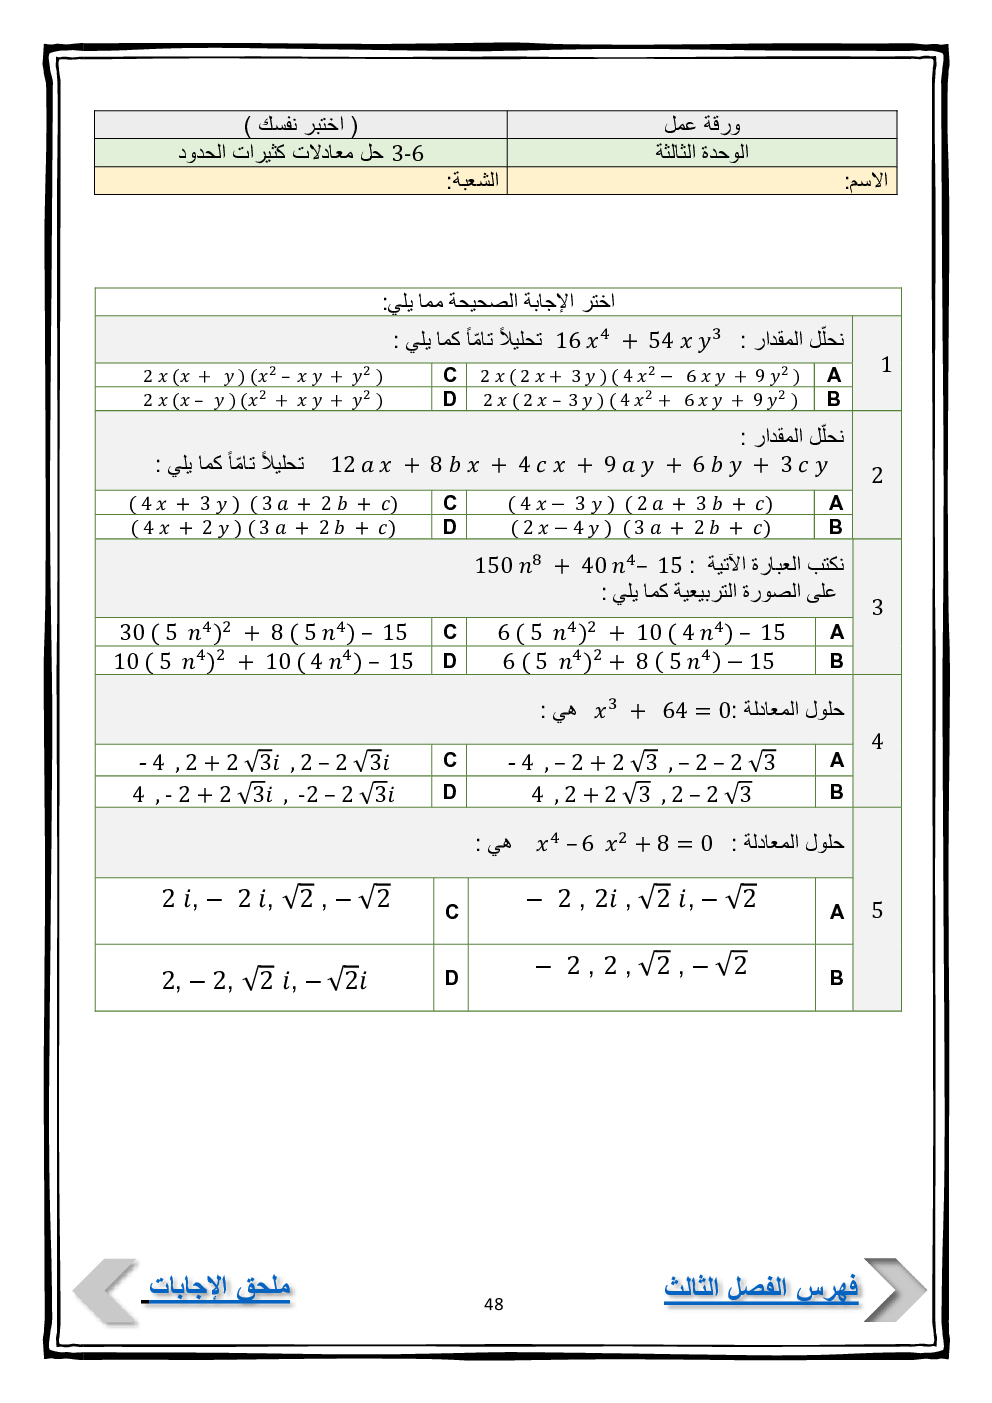 ورقة عمل ( اختبر نفسك )
الوحدة الثالثة 3-6 حل معادلات كثيرات الحدود
الاسم: الشعبة:
اختر الإجابة الصحيحة مما يلي:
1 نحلّل المقدار : 16 x⁴ + 54 x y³ تحليلاً تامّاً كما يلي :
A 2 x ( 2 x + 3 y ) ( 4 x² − 6 x y + 9 y² ) C 2 x (x + y ) (x² – x y + y² )
B 2 x ( 2 x – 3 y ) ( 4 x² + 6 x y + 9 y² ) D 2 x (x – y ) (x² + x y + y² )
2 نحلّل المقدار :
12 a x + 8 b x + 4 c x + 9 a y + 6 b y + 3 c y تحليلاً تامّاً كما يلي :
A ( 4 x − 3 y ) ( 2 a + 3 b + c) C ( 4 x + 3 y ) ( 3 a + 2 b + c)
B ( 2 x − 4 y ) ( 3 a + 2 b + c) D ( 4 x + 2 y ) ( 3 a + 2 b + c)
3 نكتب العبارة الآتية : 150 n⁸ + 40 n⁴– 15
على الصورة التربيعية كما يلي :
A 6 ( 5 n⁴)² + 10 ( 4 n⁴) – 15 C 30 ( 5 n⁴)² + 8 ( 5 n⁴) – 15
B 6 ( 5 n⁴)² + 8 ( 5 n⁴) − 15 D 10 ( 5 n⁴)² + 10 ( 4 n⁴) – 15
4 حلول المعادلة :x³ + 64 = 0 هي :
A - 4 , – 2 + 2 √3 , – 2 – 2 √3 C - 4 , 2 + 2 √3i , 2 – 2 √3i
B 4 , 2 + 2 √3 , 2 – 2 √3 D 4 , - 2 + 2 √3i , -2 – 2 √3i
5 حلول المعادلة : x⁴ – 6 x² + 8 = 0 هي :
A − 2 , 2i , √2 i, − √2 C 2 i, − 2 i, √2 , − √2
B − 2 , 2 , √2 , − √2 D 2, − 2, √2 i, − √2i
فهرس الفصل الثالث ملحق الإجابات
48